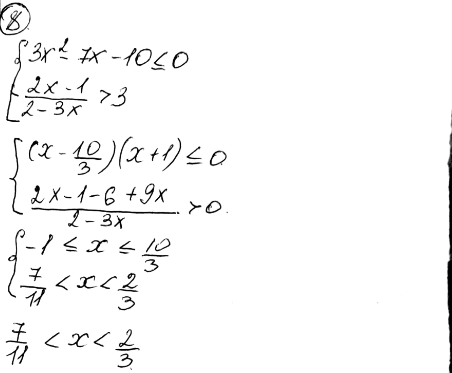 8
{ 3x² - 7x - 10 ≤ 0
{ (2x - 1)/(2 - 3x) > 3
{ (x - 10/3)(x + 1) ≤ 0
{ (2x - 1 - 6 + 9x)/(2 - 3x) > 0.
{ -1 ≤ x ≤ 10/3
{ 7/11 < x < 2/3
7/11 < x < 2/3